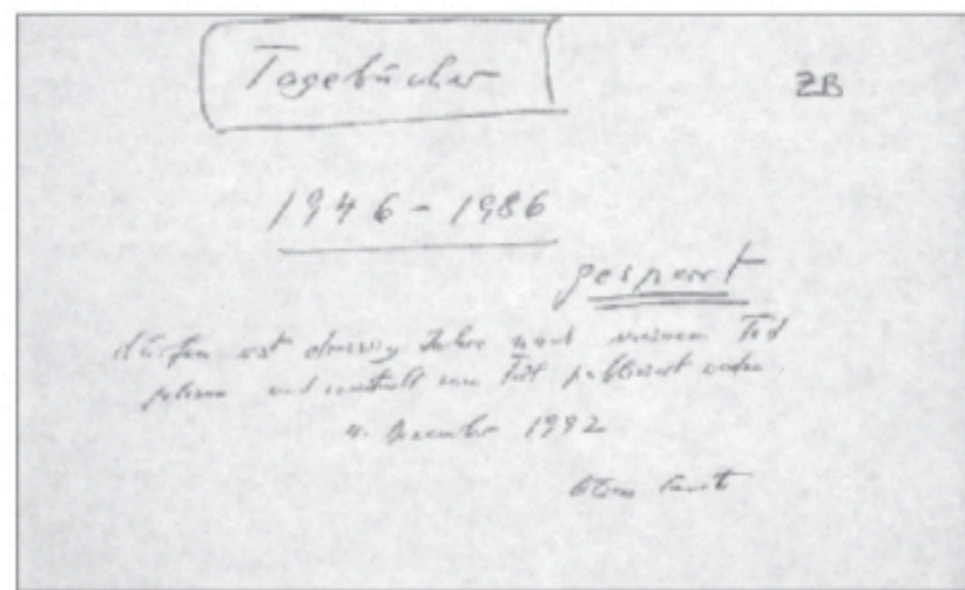 Tagebücher
ZB
1946 - 1986
gesperrt
dürfen erst dreissig Jahre nach meinem Tod
gelesen und eventuell zum Teil publiziert werden.
4. Dezember 1992
Elias Canetti